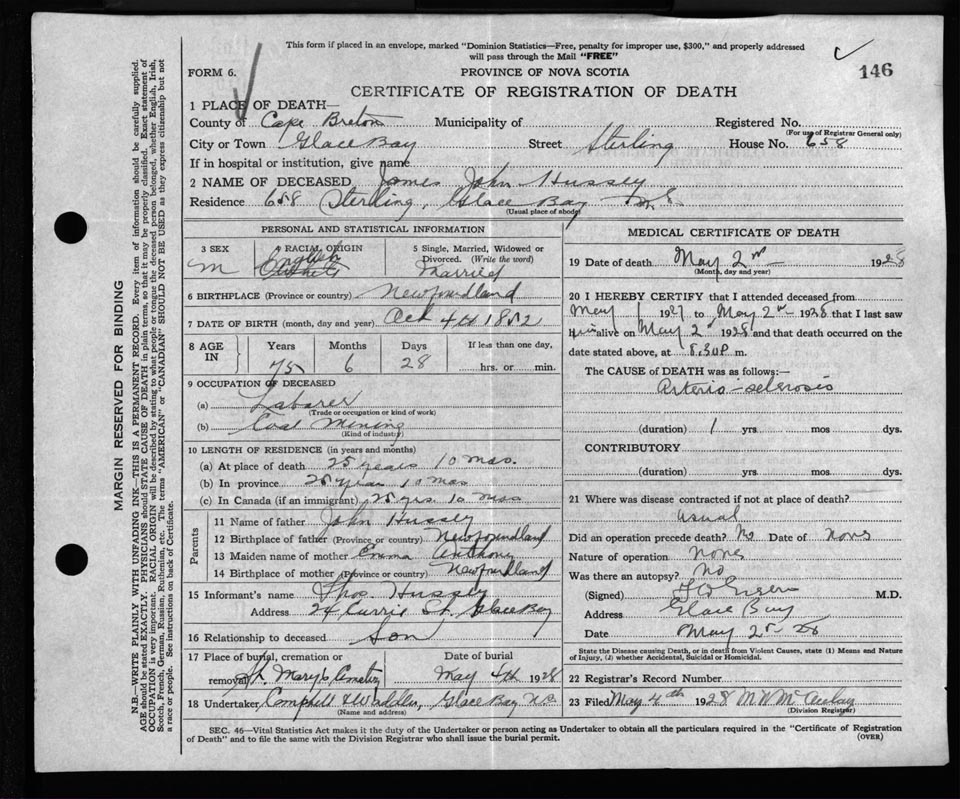 This form if placed in an envelope, marked "Dominion Statistics—Free, penalty for improper use, $300," and properly addressed
will pass through the Mail "FREE"
FORM 6.
PROVINCE OF NOVA SCOTIA
146
CERTIFICATE OF REGISTRATION OF DEATH
1 PLACE OF DEATH—
County of Cape Breton Municipality of Registered No.
(For use of Registrar General only)
City or Town Glace Bay Street Sterling House No. 658
If in hospital or institution, give name
2 NAME OF DECEASED James John Hussey
Residence 658 Sterling, Glace Bay N.S.
(Usual place of abode)
PERSONAL AND STATISTICAL INFORMATION
3 SEX M
4 RACIAL ORIGIN English
5 Single, Married, Widowed or Divorced. (Write the word) Married
6 BIRTHPLACE (Province or country) Newfoundland
7 DATE OF BIRTH (month, day and year) Oct 4th 1852
8 AGE IN Years 75 Months 6 Days 28 If less than one day, hrs. or min.
9 OCCUPATION OF DECEASED
(a) Laborer
(Trade or occupation or kind of work)
(b) Coal Mining
(Kind of industry)
10 LENGTH OF RESIDENCE (in years and months)
(a) At place of death 25 years 10 mos.
(b) In province 25 years 10 mos
(c) In Canada (if an immigrant) 25 yrs. 10 mos
Parents
11 Name of father John Hussey
12 Birthplace of father (Province or country) Newfoundland
13 Maiden name of mother Emma Anthony
14 Birthplace of mother (Province or country) Newfoundland
15 Informant's name Thos. Hussey
Address 24 Currie St. Glace Bay
16 Relationship to deceased Son
17 Place of burial, cremation or removal St. Mary's Cemetery
Date of burial May 4th 1928
18 Undertaker, Campbell Glace Bay N.S.
(Name and address)
MEDICAL CERTIFICATE OF DEATH
19 Date of death May 2nd 1928
(Month, day and year)
20 I HEREBY CERTIFY that I attended deceased from
May 1 1927 to May 2nd 1928 that I last saw
him alive on May 2nd 1928 and that death occurred on the
date stated above, at 8.30 P. m.
The CAUSE of DEATH was as follows:—
Arterio-sclerosis
(duration) 1 yrs. mos dys.
CONTRIBUTORY
(duration) yrs mos dys.
21 Where was disease contracted if not at place of death?
usual
Did an operation precede death? No Date of None
Nature of operation None
Was there an autopsy? No
(Signed) M.D.
Address Glace Bay
Date May 2nd 28
State the Disease causing Death, or in death from Violent Causes, state (1) Means and Nature
of Injury, (2) whether Accidental, Suicidal or Homicidal.
22 Registrar's Record Number
23 Filed May 4th 1928
(Division Registrar)
SEC. 46—Vital Statistics Act makes it the duty of the Undertaker or person acting as Undertaker to obtain all the particulars required in the "Certificate of Registration
of Death" and to file the same with the Division Registrar who shall issue the burial permit.
(OVER)
MARGIN RESERVED FOR BINDING
N.B.—WRITE PLAINLY WITH UNFADING INK—THIS IS A PERMANENT RECORD. Every item of information should be carefully supplied.
AGE should be stated EXACTLY. PHYSICIANS should STATE CAUSE OF DEATH in plain terms, so that it may be properly classified. Exact statement of
OCCUPATION is very important. RACIAL ORIGIN will be described by stating to what people or tongue the deceased person belonged, whether English, Irish,
Scotch, French, German, Russian, Ruthenian, etc. The terms "AMERICAN" or "CANADIAN" SHOULD NOT BE USED as they express citizenship but not
a race or people. See instructions on back of Certificate.